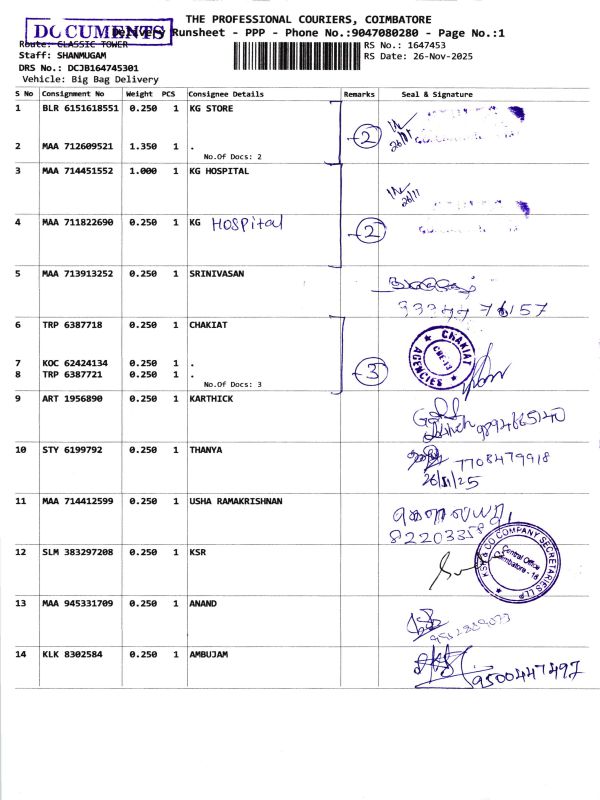 THE PROFESSIONAL COURIERS, COIMBATORE
DOCUMENTS
Delivery Runsheet - PPP - Phone No.:9047080280 - Page No.:1
Route: CLASSIC TOWER
RS No.: 1647453
Staff: SHANMUGAM
RS Date: 26-Nov-2025
DRS No.: DCJB164745301
Vehicle: Big Bag Delivery
S No Consignment No Weight PCS Consignee Details Remarks Seal & Signature
1 BLR 6151618551 0.250 1 KG STORE
2 MAA 712609521 1.350 1 .
No.Of Docs: 2
2
26/11
3 MAA 714451552 1.000 1 KG HOSPITAL
26/11
4 MAA 711822690 0.250 1 KG HOSPital
2
5 MAA 713913252 0.250 1 SRINIVASAN
6 TRP 6387718 0.250 1 CHAKIAT
CHAKIAT AGENCIES
7 KOC 62424134 0.250 1 .
8 TRP 6387721 0.250 1 .
No.Of Docs: 3
3
9 ART 1956890 0.250 1 KARTHICK
9894665140
10 STY 6199792 0.250 1 THANYA
7708479918
26/11/25
11 MAA 714412599 0.250 1 USHA RAMAKRISHNAN
12 SLM 383297208 0.250 1 KSR
KSR & CO COMPANY SECRETARIES LLP
Central Office
Coimbatore - 18
13 MAA 945331709 0.250 1 ANAND
14 KLK 8302584 0.250 1 AMBUJAM
9500447497